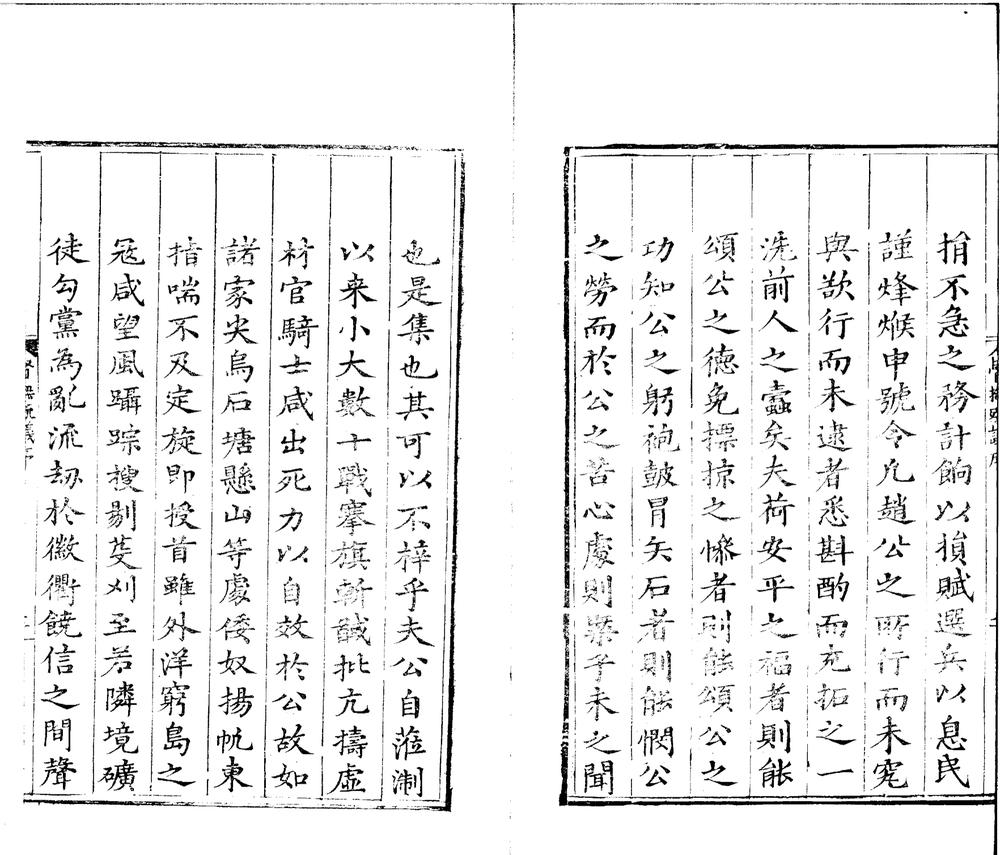 捐不急之務計餉以損賦選兵以息民
謹烽堠申號令凡趙公之所行而未究
與欲行而未逮者悉斟酌而充拓之一
洗前人之蠹矣夫荷安平之福者則能
頌公之德免摽掠之慘者則能頌公之
功知公之躬袍鼓冒矢石者則能憫公
之勞而於公之苦心處則第子未之聞
也是集也其可以不梓乎夫公自蒞淛
以来小大數十戰搴旗斬馘批亢擣虛
材官騎士咸出死力以自效於公故如
諸家尖烏石塘懸山等處倭奴揚帆東
指喘不及定旋即授首雖外洋窮島之
寇咸望風躡踪搜剔芟刈至若隣境礦
徒勾黨為亂流劫於徽衢饒信之間聲